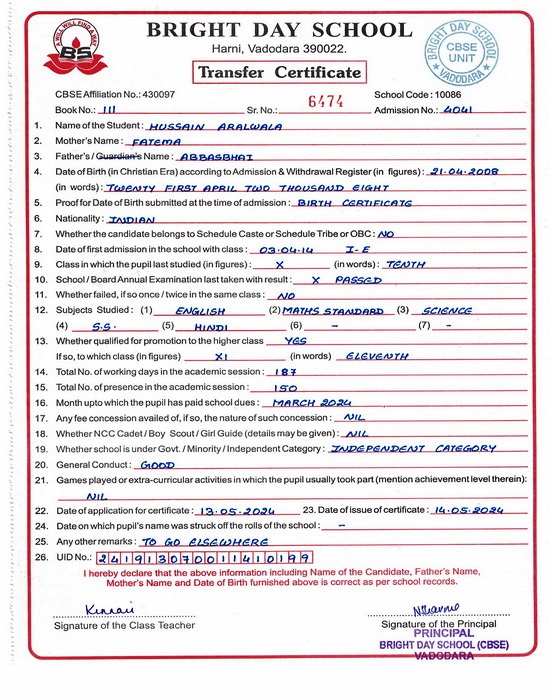 A WILL WILL FIND A WAY
BS
BRIGHT DAY SCHOOL
Harni, Vadodara 390022.
Transfer Certificate
BRIGHT DAY SCHOOL
CBSE
UNIT
VADODARA
CBSE Affiliation No.: 430097 School Code : 10086
Book No.: III Sr. No.: 6474 Admission No.: 4041
1. Name of the Student : HUSSAIN ARALWALA
2. Mother's Name : FATEMA
3. Father's / Guardian's Name : ABBASBHAI
4. Date of Birth (in Christian Era) according to Admission & Withdrawal Register (in figures) : 21-04-2008
(in words) : TWENTY FIRST APRIL TWO THOUSAND EIGHT
5. Proof for Date of Birth submitted at the time of admission : BIRTH CERTIFICATE
6. Nationality : INDIAN
7. Whether the candidate belongs to Schedule Caste or Schedule Tribe or OBC : NO
8. Date of first admission in the school with class : 03-04-14 I-E
9. Class in which the pupil last studied (in figures) : X (in words) : TENTH
10. School / Board Annual Examination last taken with result : X PASSED
11. Whether failed, if so once / twice in the same class : NO
12. Subjects Studied : (1) ENGLISH (2) MATHS STANDARD (3) SCIENCE
(4) S.S. (5) HINDI (6) – (7) –
13. Whether qualified for promotion to the higher class YES
If so, to which class (in figures) XI (in words) ELEVENTH
14. Total No. of working days in the academic session : 187
15. Total No. of presence in the academic session : 150
16. Month upto which the pupil has paid school dues : MARCH 2024
17. Any fee concession availed of, if so, the nature of such concession : NIL
18. Whether NCC Cadet / Boy Scout / Girl Guide (details may be given) : NIL
19. Whether school is under Govt. / Minority / Independent Category : INDEPENDENT CATEGORY
20. General Conduct : GOOD
21. Games played or extra-curricular activities in which the pupil usually took part (mention achievement level therein):
NIL
22. Date of application for certificate : 13-05-2024 23. Date of issue of certificate : 14-05-2024
24. Date on which pupil's name was struck off the rolls of the school : –
25. Any other remarks : TO GO ELSEWHERE
26. UID No.: 241913070011410199
I hereby declare that the above information including Name of the Candidate, Father's Name,
Mother's Name and Date of Birth furnished above is correct as per school records.
Signature of the Class Teacher
Signature of the Principal
PRINCIPAL
BRIGHT DAY SCHOOL (CBSE)
VADODARA